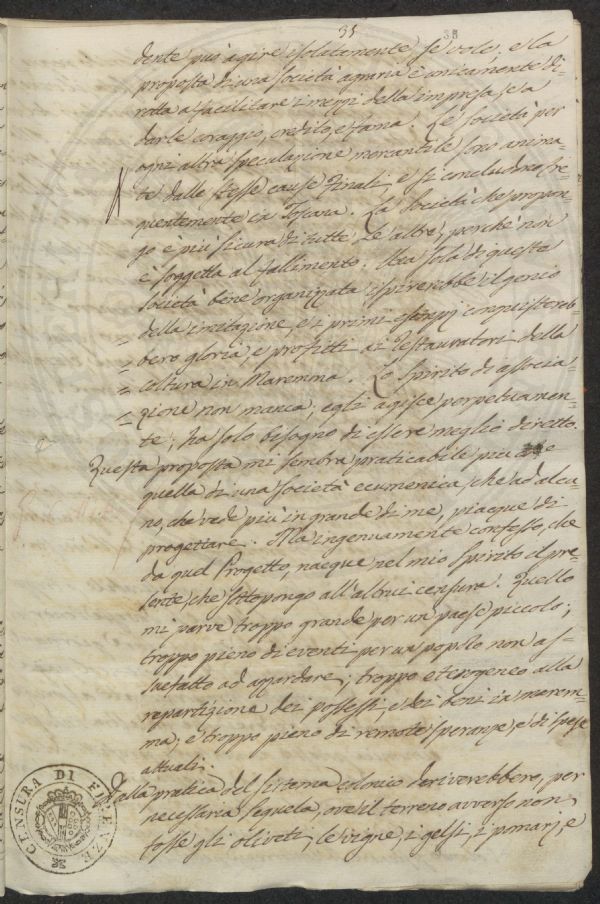 35 38
dente può agire isolatamente, se vole, e la
proposta di una società agraria è unicamente di-
retta a facilitare i mezzi della impresa, e a
darle coraggio, credito, e fama. Le società per
ogni altra speculazione mercantile sono anima-
te dalle stesse cause finali, e si concludono fre-
quentemente in Toscana. La Società che propon-
go è più sicura di tutte le altre, perchè non
è soggetta al fallimento. Una sola di queste
società bene organizzata ispirerebbe il genio
della imitazione, e i primi esempj conquistereb-
bero gloria, e profitti ai restauratori della
coltura in Maremma. Lo Spirito di associa-
zione non manca; egli agisce perpetuamen-
te; ha solo bisogno di essere meglio diretto.
Questa proposta mi sembra praticabile più di
quella di una società ecumenica, che ad alcu-
no, che vede più in grande di me, piacque di
progettare. Ma ingenuamente confesso, che
da quel Progetto, nacque nel mio Spirito il pre-
sente, che sottopongo all'altrui censura. Quello
mi parve troppo grande per un paese piccolo;
troppo pieno di eventi per un popolo non as-
suefatto ad azzardare; troppo eterogeneo alla
repartizione dei possessi, e dei beni in marem-
ma, e troppo pieno di remote speranze, e di spese
attuali.
Dalla pratica del sistema colonico deriverebbero, per
necessaria sequela, ove il terreno avverso non
fosse gli oliveti, le vigne, i gelsi, i pomarj, e
CENSURA DI FIRENZE